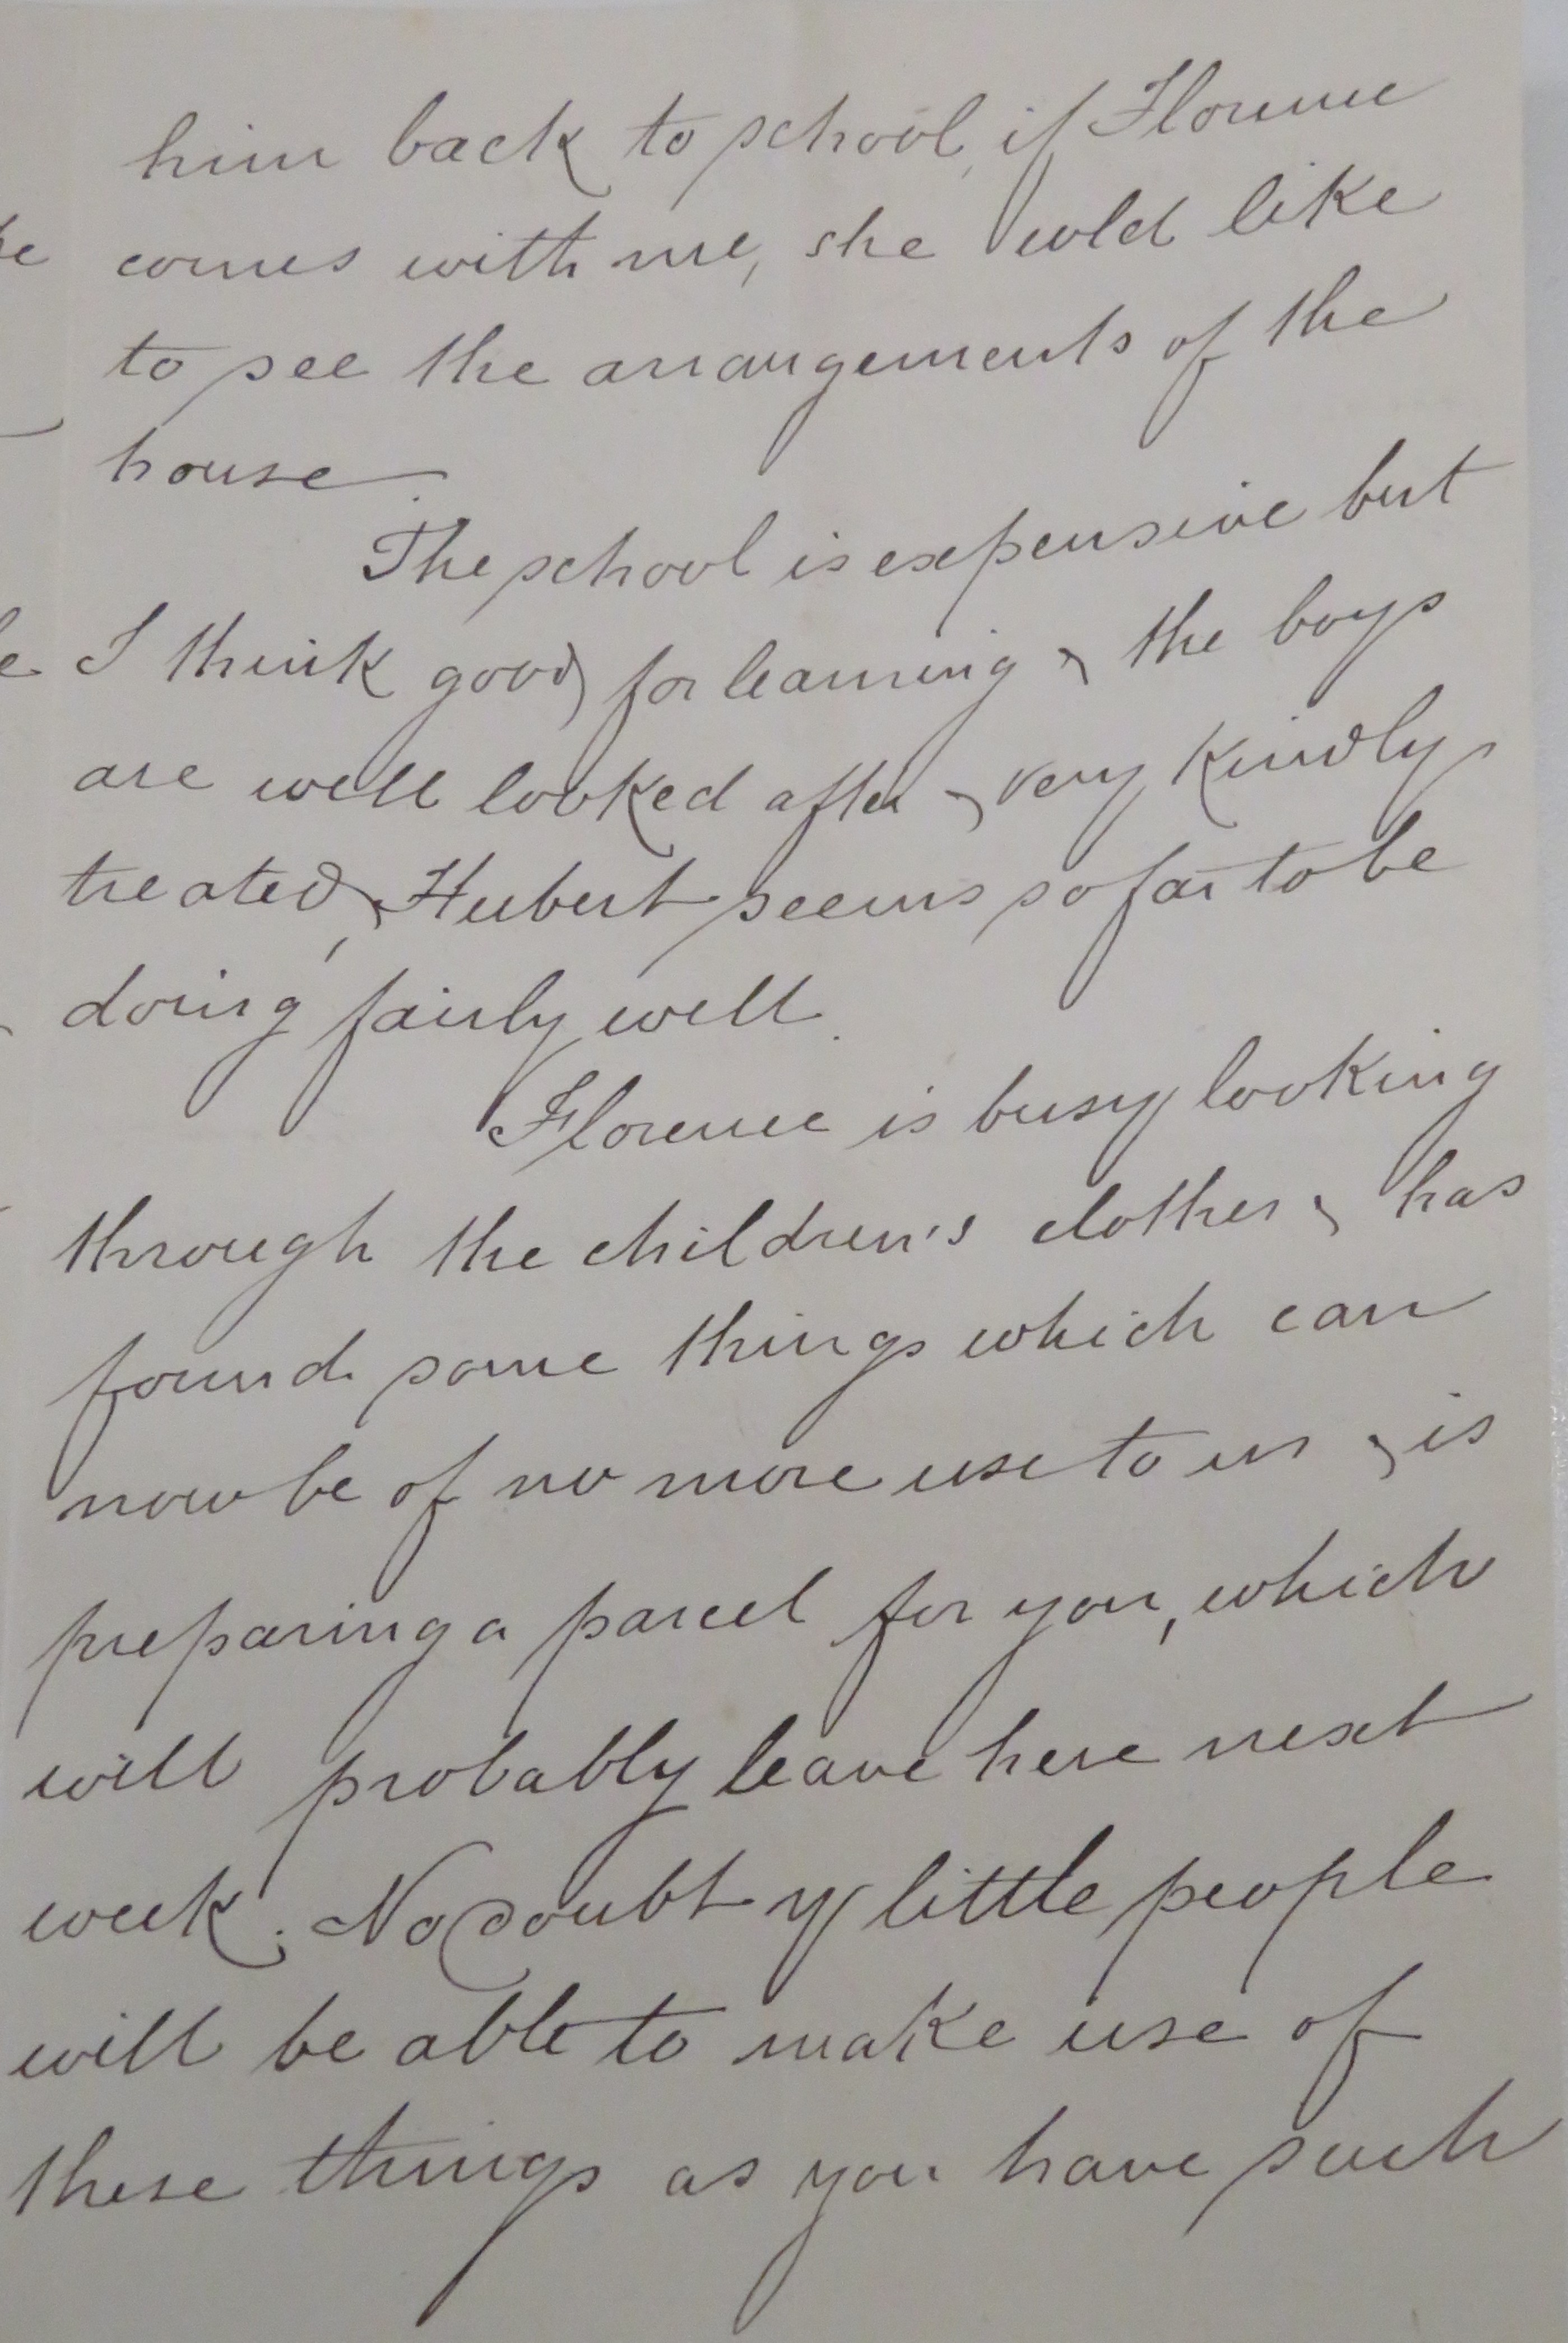 him back to school, if Florence
comes with me, she wld like
to see the arrangements of the
house.
The school is expensive but
I think good for learning & the boys
are well looked after & very kindly
treated, & Hubert seems so far to be
doing fairly well.
Florence is busy looking
through the children's clothes & has
found some things which can
now be of no more use to us & is
preparing a parcel for you, which
will probably leave here next
week. No doubt yr little people
will be able to make use of
these things as you have such